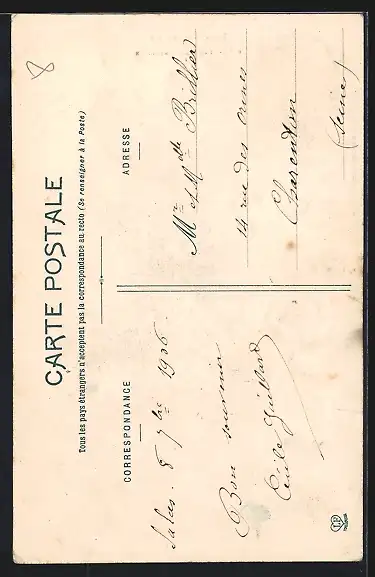 CARTE POSTALE
Tous les pays étrangers n'acceptent pas la correspondance au recto (Se renseigner à la Poste)
CORRESPONDANCE
ADRESSE
8
Salas. 8 7bre 1906
Bon souvenir
Cécile Guillard
Mr et Mselle Brillier
14 rue des ormes
Charenton
(Seine)